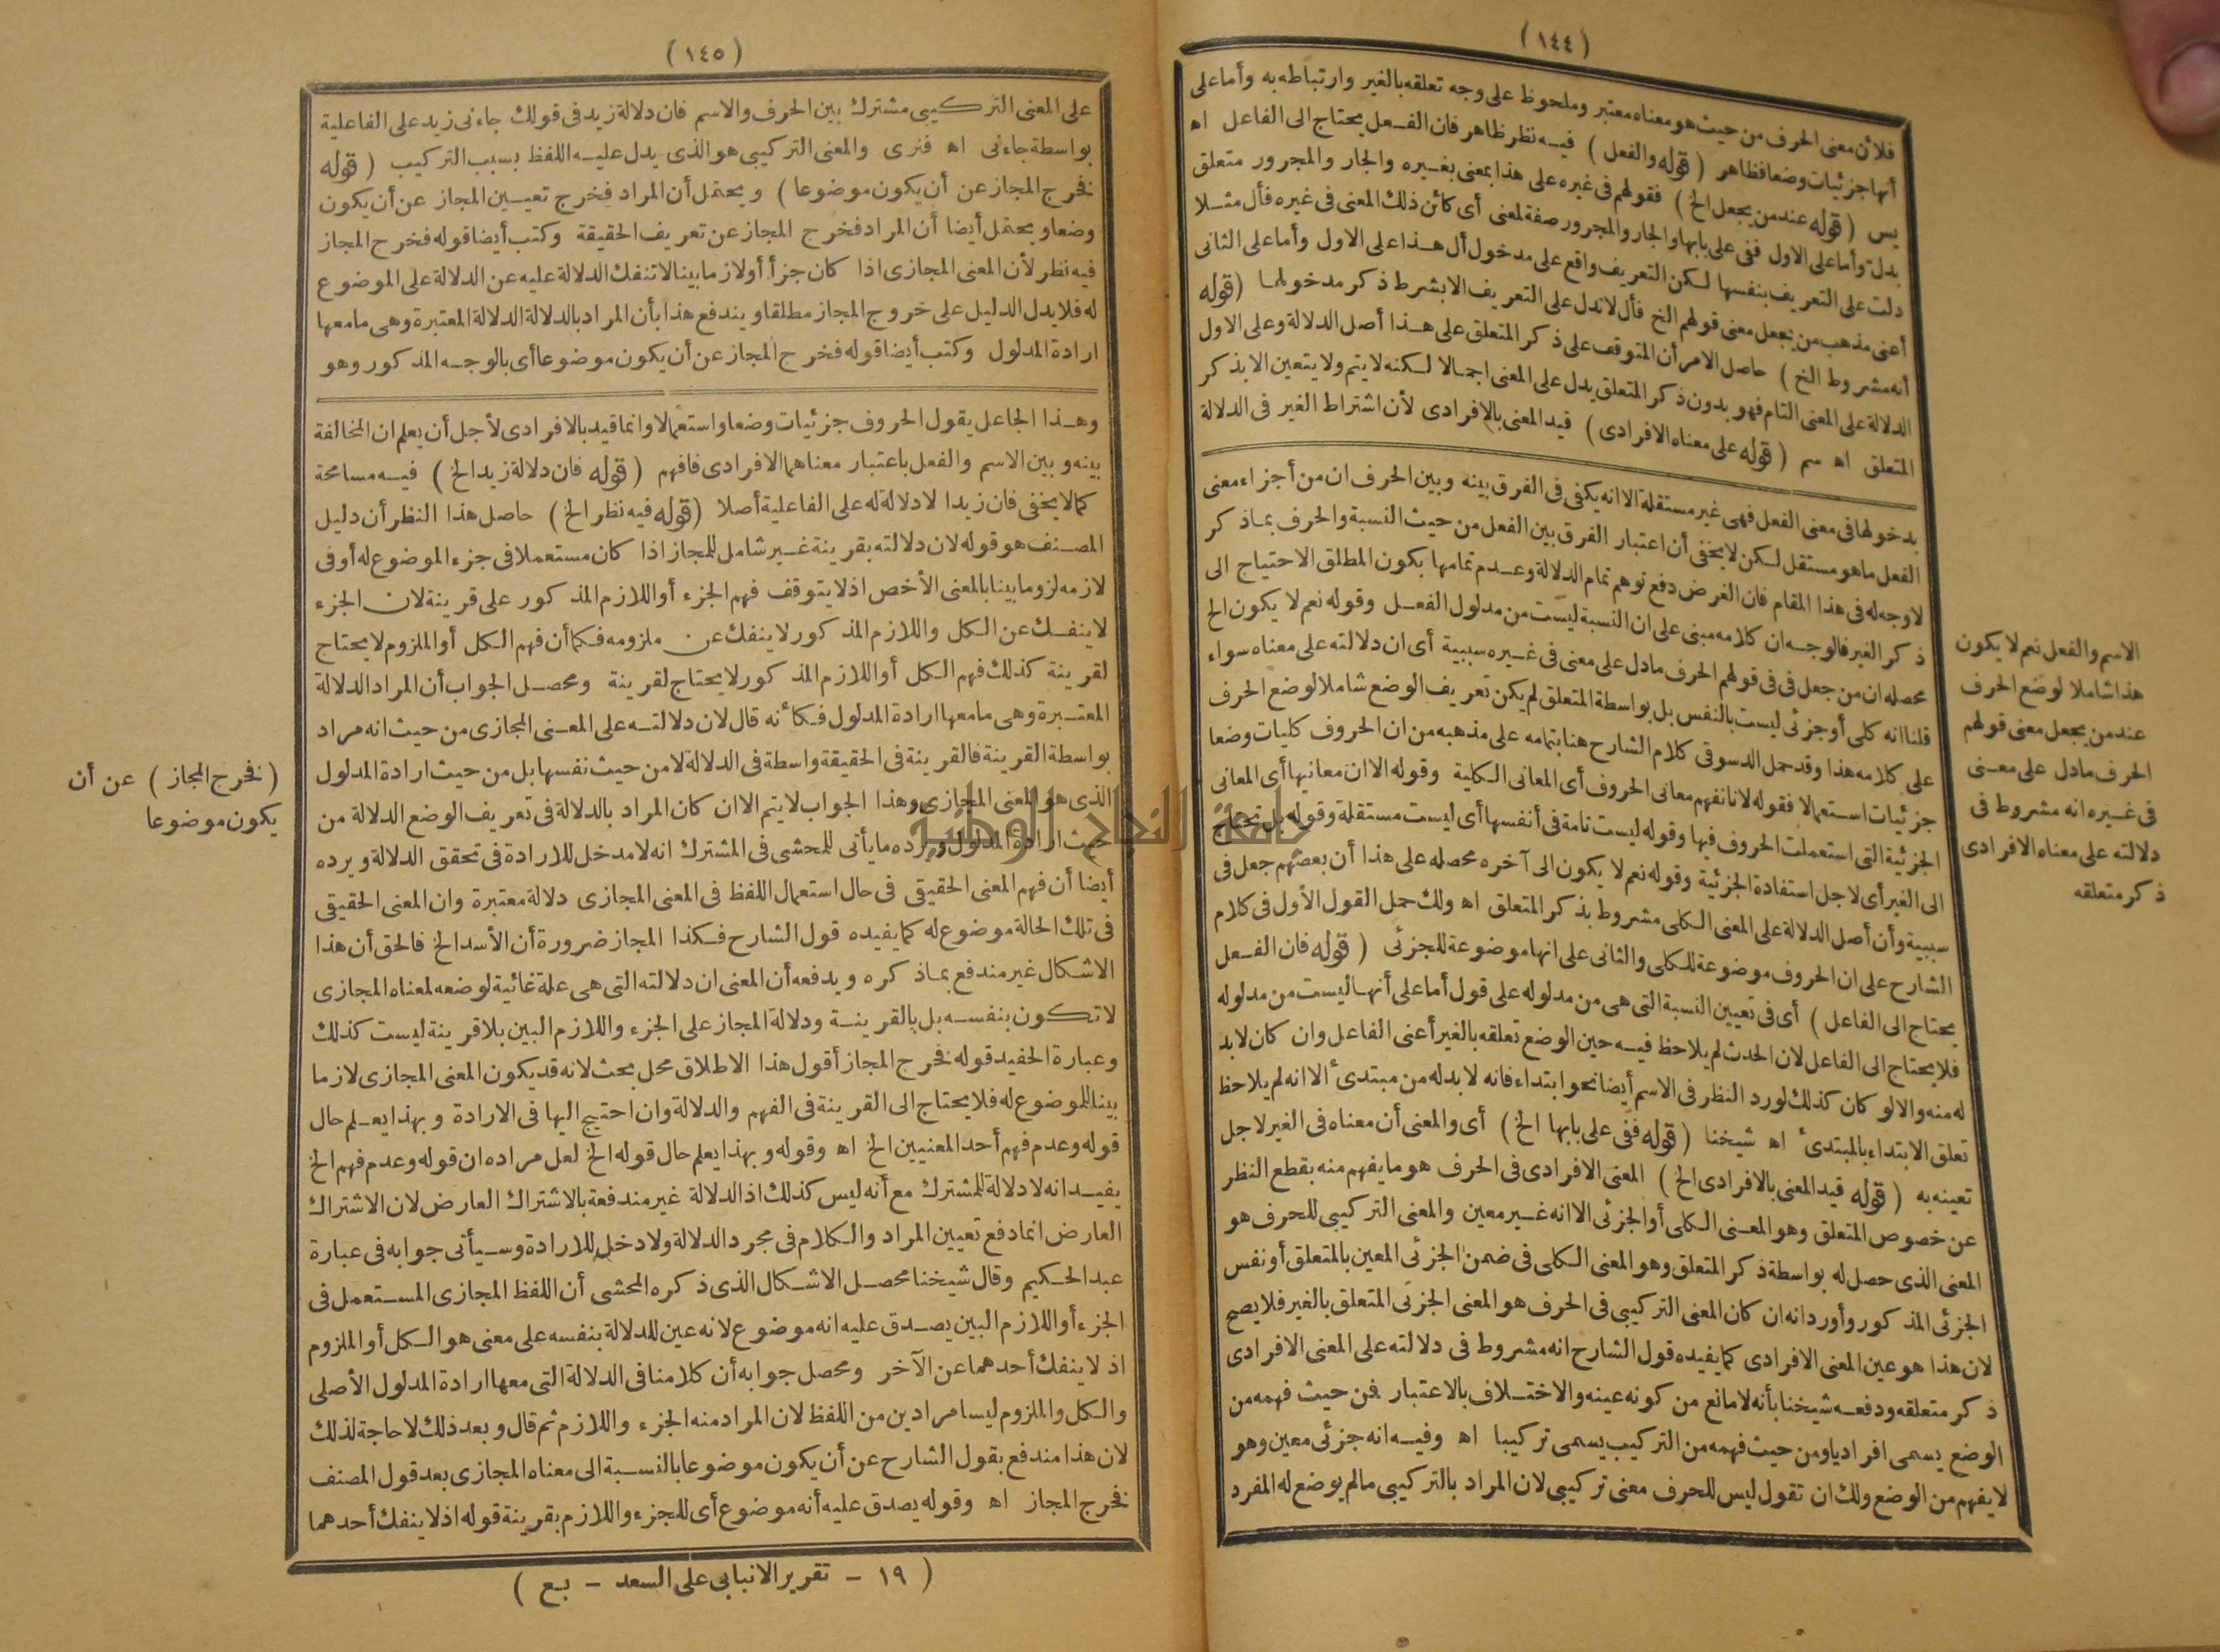 (١٤٤)
فلأن معنى الحرف من حيث هو معناه معتبر وملحوظ على وجه تعلقه بالغير وارتباطه به وأما على
أنها جزئيات وضعا فظاهر (قوله والفعل) فيه نظر ظاهر فان الفعل يحتاج الى الفاعل اه
يس (قوله عند من يجعل الخ) فقولهم فى غيره على هذا بمعنى بغيره والجار والمجرور متعلق
بدل وأما على الاول ففى على بابها والجار والمجرور صفة لمعنى أى كائن ذلك المعنى فى غيره فأل مثلا
دلت على التعريف بنفسها لكن التعريف واقع على مدخول أل هذا على الاول وأما على الثانى
أعنى مذهب من يجعل معنى قولهم الخ فأل لا تدل على التعريف الا بشرط ذكر مدخولها (قوله
أنه مشروط الخ) حاصل الامر أن المتوقف على ذكر المتعلق على هذا أصل الدلالة وعلى الاول
الدلالة على المعنى التام فهو بدون ذكر المتعلق يدل على المعنى اجمالا لكنه لا يتم ولا يتعين الا بذكر
المتعلق اه سم (قوله على معناه الافرادى) قيد المعنى بالافرادى لأن اشتراط الغير فى الدلالة
بدخولها فى معنى الفعل فهى غير مستقلة الا انه يكفى فى الفرق بينه وبين الحرف ان من أجزاء معنى
الفعل ما هو مستقل لكن لا يخفى أن اعتبار الفرق بين الفعل من حيث النسبة والحرف بما ذكر
لا وجه له فى هذا المقام فان الغرض دفع توهم تمام الدلالة وعدم تمامها بكون المطلق الاحتياج الى
ذكر الغير فالوجه ان كلامه مبنى على ان النسبة ليست من مدلول الفعل وقوله نعم لا يكون الخ
محصله ان من جعل فى فى قولهم الحرف ما دل على معنى فى غيره سببية أى ان دلالته على معناه سواء
قلنا انه كلى أو جزئى ليست بالنفس بل بواسطة المتعلق لم يكن تعريف الوضع شاملا لوضع الحرف
على كلامه هذا وقد حمل الدسوقى كلام الشارح هنا بتمامه على مذهبه من ان الحروف كليات وضعا
جزئيات استعمالا فقوله لا نا نفهم معانى الحروف أى المعانى الكلية وقوله الا ان معانيها أى المعانى
الجزئية التى استعملت الحروف فيها وقوله ليست تامة فى أنفسها أى ليست مستقلة وقوله بل تحتاج
الى الغير أى لاجل استفادة الجزئية وقوله نعم لا يكون الى آخره محصله على هذا أن بعضهم جعل فى
سببية وأن أصل الدلالة على المعنى الكلى مشروط بذكر المتعلق اه ولك حمل القول الأول فى كلام
الشارح على ان الحروف موضوعة للكلى والثانى على انها موضوعة للجزئى (قوله فان الفعل
يحتاج الى الفاعل) أى فى تعيين النسبة التى هى من مدلوله على قول أما على أنها ليست من مدلوله
فلا يحتاج الى الفاعل لان الحدث لم يلاحظ فيه حين الوضع تعلقه بالغير أعنى الفاعل وان كان لابد
له منه والا لو كان كذلك لورد النظر فى الاسم أيضا نحو ابتداء فانه لا بد له من مبتدئ الا انه لم يلاحظ
تعلق الابتداء بالمبتدئ اه شيخنا (قوله ففى على بابها الخ) أى والمعنى أن معناه فى الغير لاجل
تعينه به (قوله قيد المعنى بالافرادى الخ) المعنى الافرادى فى الحرف هو ما يفهم منه بقطع النظر
عن خصوص المتعلق وهو المعنى الكلى أو الجزئى الا انه غير معين والمعنى التركيبى للحرف هو
المعنى الذى حصل له بواسطة ذكر المتعلق وهو المعنى الكلى فى ضمن الجزئى المعين بالمتعلق أو نفس
الجزئى المذكور وأورد انه ان كان المعنى التركيبى فى الحرف هو المعنى الجزئى المتعلق بالغير فلا يصح
لان هذا هو عين المعنى الافرادى كما يفيده قول الشارح انه مشروط فى دلالته على المعنى الافرادى
ذكر متعلقه ودفعه شيخنا بأنه لا مانع من كونه عينه والاختلاف بالاعتبار فمن حيث فهمه من
الوضع يسمى افراديا ومن حيث فهمه من التركيب يسمى تركيبا اه وفيه انه جزئى معين وهو
لا يفهم من الوضع ولك ان تقول ليس للحرف معنى تركيبى لان المراد بالتركيبى ما لم يوضع له المفرد
الاسم والفعل نعم لا يكون
هذا شاملا لوضع الحرف
عند من يجعل معنى قولهم
الحرف ما دل على معنى
فى غيره انه مشروط فى
دلالته على معناه الافرادى
ذكر متعلقه
(١٤٥)
على المعنى التركيبى مشترك بين الحرف والاسم فان دلالة زيد فى قولك جاءنى زيد على الفاعلية
بواسطة جاءنى اه فنرى والمعنى التركيبى هو الذى يدل عليه اللفظ بسبب التركيب (قوله
فخرج المجاز عن أن يكون موضوعا) ويحتمل أن المراد فخرج تعيين المجاز عن أن يكون
وضعا ويحتمل أيضا أن المراد فخرج المجاز عن تعريف الحقيقة وكتب أيضا قوله فخرج المجاز
فيه نظر لأن المعنى المجازى اذا كان جزأ أو لازما بينا لا تنفك الدلالة عليه عن الدلالة على الموضوع
له فلا يدل الدليل على خروج المجاز مطلقا ويندفع هذا بأن المراد بالدلالة الدلالة المعتبرة وهى ما معها
ارادة المدلول وكتب أيضا قوله فخرج المجاز عن أن يكون موضوعا أى بالوجه المذكور وهو
وهذا الجاعل يقول الحروف جزئيات وضعا واستعمالا وانما قيد بالافرادى لأجل أن يعلم ان المخالفة
بينه وبين الاسم والفعل باعتبار معناهما الافرادى فافهم (قوله فان دلالة زيد الخ) فيه مسامحة
كما لا يخفى فان زيدا لا دلالة له على الفاعلية أصلا (قوله فيه نظر الخ) حاصل هذا النظر أن دليل
المصنف هو قوله لان دلالته بقرينة غير شامل للمجاز اذا كان مستعملا فى جزء الموضوع له أو فى
لازمه لزوما بينا بالمعنى الأخص اذ لا يتوقف فهم الجزء أو اللازم المذكور على قرينة لان الجزء
لا ينفك عن الكل واللازم المذكور لا ينفك عن ملزومه فكما أن فهم الكل أو الملزوم لا يحتاج
لقرينة كذلك فهم الكل أو اللازم المذكور لا يحتاج لقرينة ومحصل الجواب أن المراد الدلالة
المعتبرة وهى ما معها ارادة المدلول فكأنه قال لان دلالته على المعنى المجازى من حيث انه مراد
بواسطة القرينة فالقرينة فى الحقيقة واسطة فى الدلالة لا من حيث نفسها بل من حيث ارادة المدلول
الذى هو المعنى المجازى وهذا الجواب لا يتم الا ان كان المراد بالدلالة فى تعريف الوضع الدلالة من
حيث ارادة المدلول ويرده ما يأتى للمحشى فى المشترك انه لا مدخل للارادة فى تحقق الدلالة ويرده
أيضا أن فهم المعنى الحقيقى فى حال استعمال اللفظ فى المعنى المجازى دلالة معتبرة وان المعنى الحقيقى
فى تلك الحالة موضوع له كما يفيده قول الشارح فكذا المجاز ضرورة أن الأسد الخ فالحق أن هذا
الاشكال غير مندفع بما ذكره ويدفعه أن المعنى ان دلالته التى هى علة غائية لوضعه لمعناه المجازى
لا تكون بنفسه بل بالقرينة ودلالة المجاز على الجزء واللازم البين بلا قرينة ليست كذلك
وعبارة الحفيد قوله فخرج المجاز أقول هذا الاطلاق محل بحث لانه قد يكون المعنى المجازى لازما
بينا للموضوع له فلا يحتاج الى القرينة فى الفهم والدلالة وان احتيج اليها فى الارادة وبهذا يعلم حال
قوله وعدم فهم أحد المعنيين الخ اه وقوله وبهذا يعلم حال قوله الخ لعل مراده ان قوله وعدم فهم الخ
يفيد انه لا دلالة للمشترك مع أنه ليس كذلك اذ الدلالة غير مندفعة بالاشتراك العارض لان الاشتراك
العارض انما دفع تعيين المراد والكلام فى مجرد الدلالة ولا دخل للارادة وسيأتى جوابه فى عبارة
عبد الحكيم وقال شيخنا محصل الاشكال الذى ذكره المحشى أن اللفظ المجازى المستعمل فى
الجزء أو اللازم البين يصدق عليه انه موضوع لانه عين للدلالة بنفسه على معنى هو الكل أو الملزوم
اذ لا ينفك أحدهما عن الآخر ومحصل جوابه أن كلامنا فى الدلالة التى معها ارادة المدلول الأصلى
والكل والملزوم ليسا مرادين من اللفظ لان المراد منه الجزء واللازم ثم قال وبعد ذلك لا حاجة لذلك
لان هذا مندفع بقول الشارح عن أن يكون موضوعا بالنسبة الى معناه المجازى بعد قول المصنف
فخرج المجاز اه وقوله يصدق عليه أنه موضوع أى للجزء واللازم بقرينة قوله اذ لا ينفك أحدهما
(فخرج المجاز) عن أن
يكون موضوعا
(١٩ - تقرير الانبابى على السعد - بع)
جامعة النجاح الوطنية